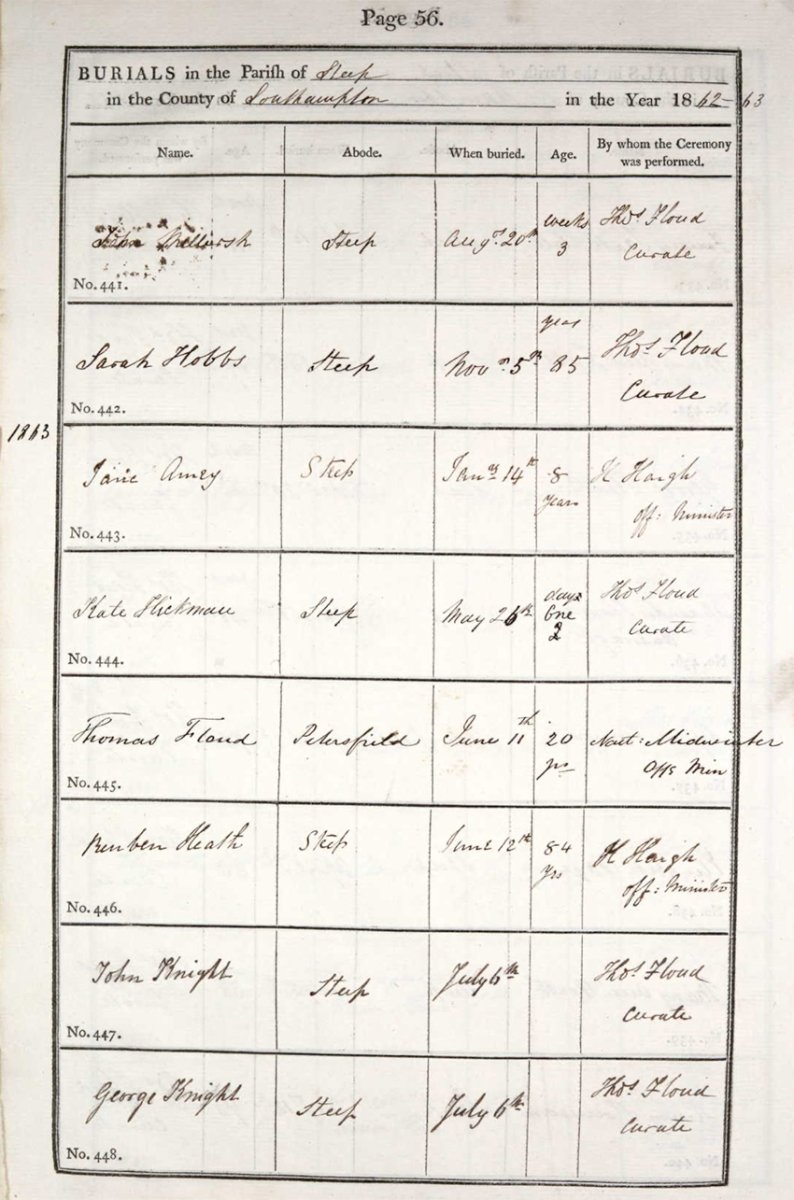 Page 56.
BURIALS in the Parish of Steep
in the County of Southampton in the Year 1862-63
Name. Abode. When buried. Age. By whom the Ceremony was performed.
John Steep Augst. 20th weeks 3 Thos. Floud
Curate
No. 441.
Sarah Hobbs Steep Novr. 5th years 85 Thos. Floud
Curate
No. 442.
1863
Jane Amey Steep Jany 14th 8 years H Haigh
off: Minister
No. 443.
Kate Hickman Steep May 26th days One 2 Thos. Floud
Curate
No. 444.
Thomas Floud Petersfield June 11th 20 yrs Nat: Midwinter
Offg Min
No. 445.
Reuben Heath Steep June 12th 84 Yrs H Haigh
off: Minister
No. 446.
John Knight Steep July 6th Thos. Floud
Curate
No. 447.
George Knight Steep July 6th Thos. Floud
Curate
No. 448.